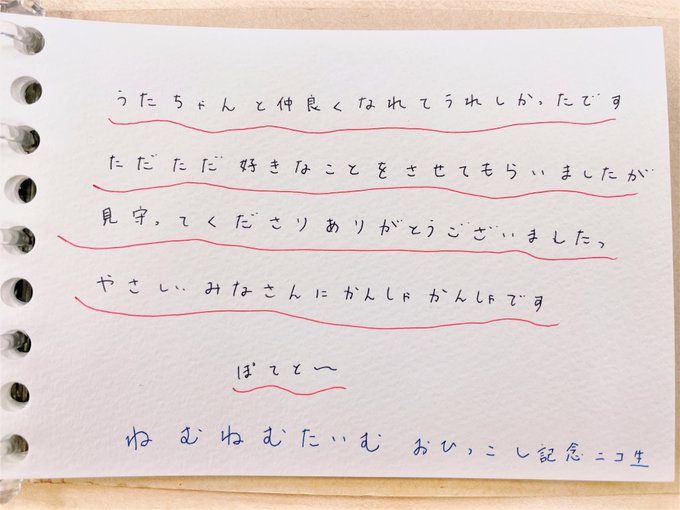 うたちゃんと仲良くなれてうれしかったです
ただただ好きなことをさせてもらいましたが
見守ってくださりありがとうございましたっ
やさしいみなさんにかんしゃかんしゃです
ぽてと〜
ねむねむたいむ おひっこし記念ニコ生